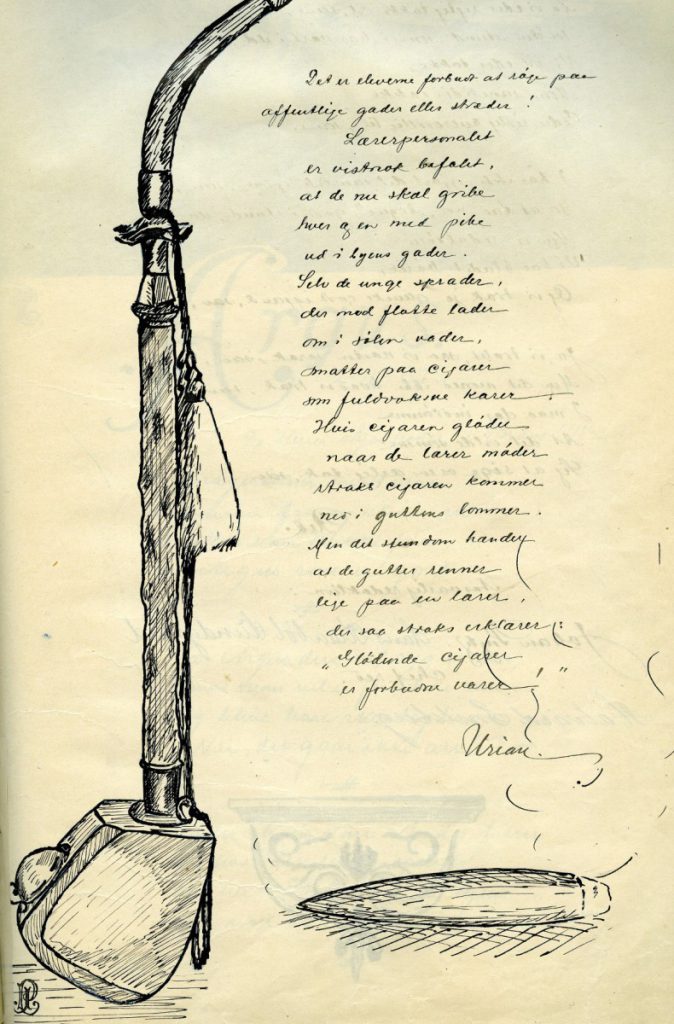 Det er eleverne forbudt at röge paa
offentlige gader eller stræder!
Lærerpersonalet
er vistnok befalet,
at de nu skal gribe
hver og en med pibe
ud i byens gader.
Selv de unge sprader,
der med flotte lader
om i sölen vader,
smatter paa cigarer
som fuldvoksne karer.
Hvis cigaren glöder
naar de lærer möder
straks cigaren kommer
ned i guttens lommer.
Men det stundom hænder
at de gutter renner
lige paa en lærer,
der saa straks erklærer:
"Glödende cigarer
er forbudne varer!"
Urian.